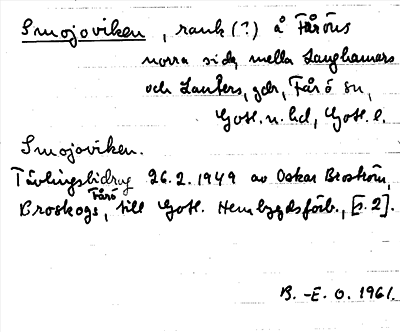 Smojoviken, vank (?) å Fåröns
norra sida, mella Langhamars
och Lauters, gdr, Fårö sn,
Gotl. n. hd, Gotl. l.
Smojoviken.
Tävlingsbidrag 26.2.1949 av Oskar Broström,
Broskogs, Fårö, till Gotl. Hembygdsförb., [s. 2].
B.-E. O. 1961.